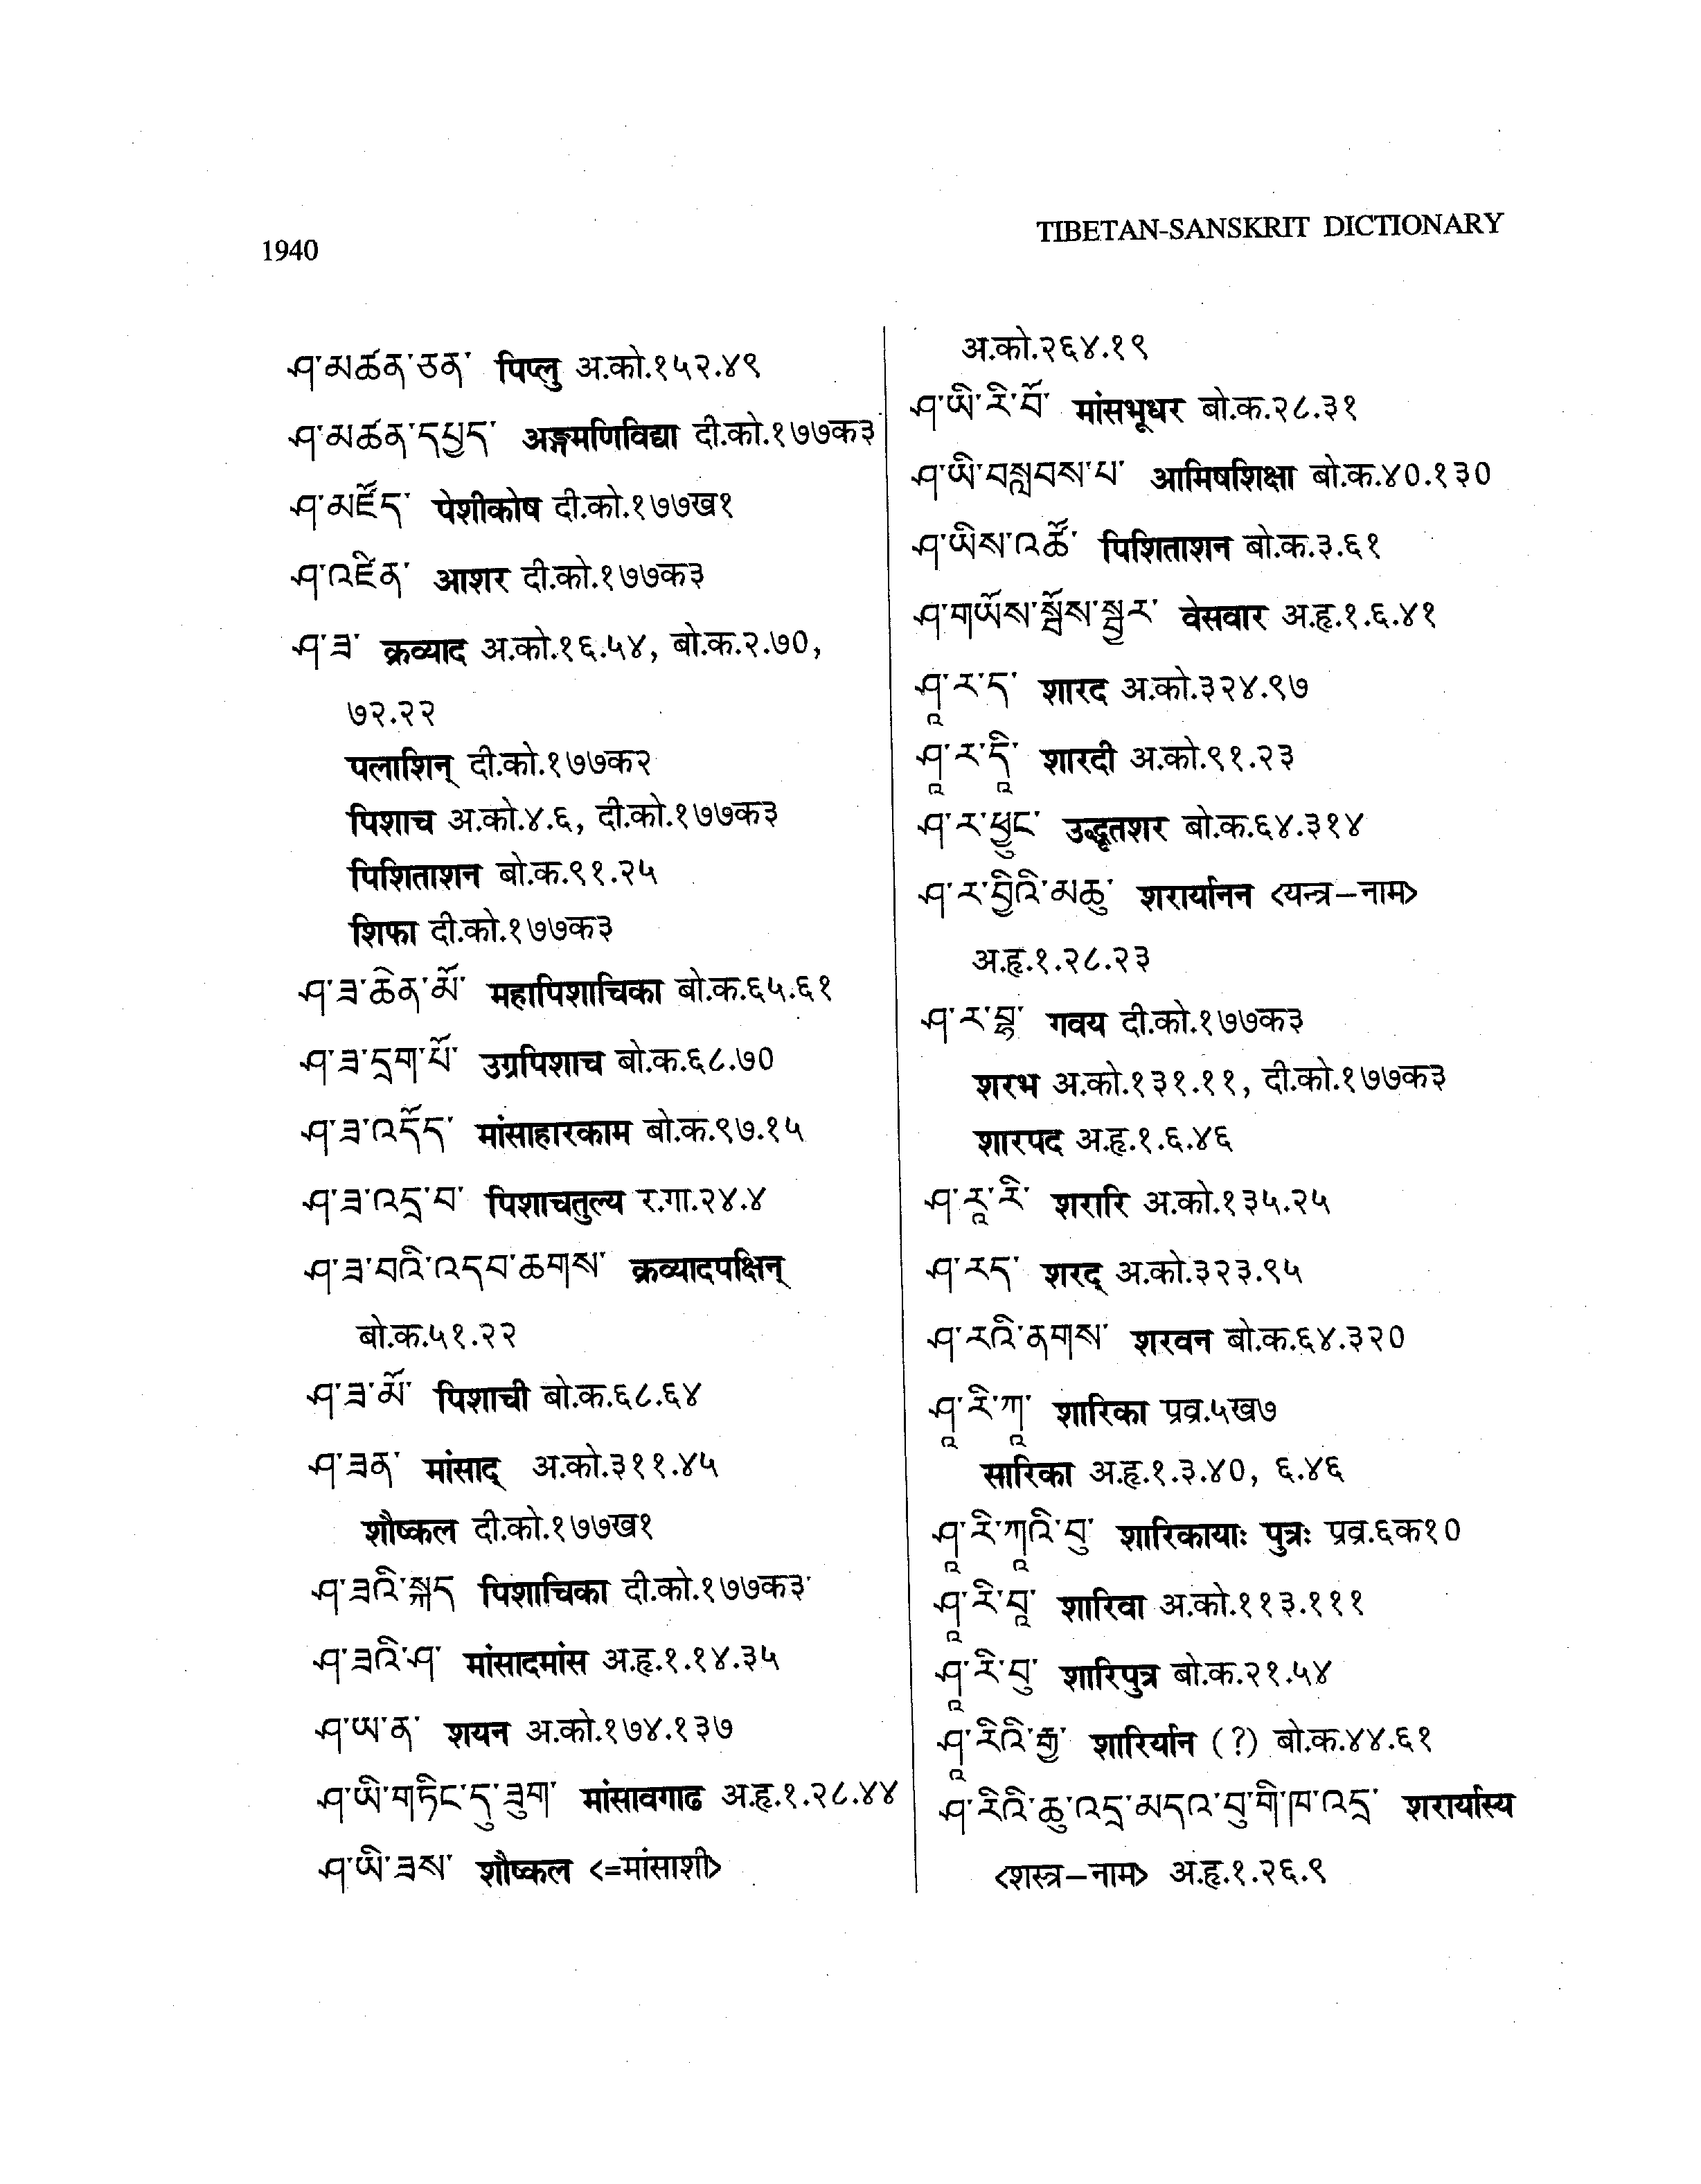 1940
TIBETAN-SANSKRIT DICTIONARY
ཤ་མཚན་ཅན་ पिप्लु अ.को.१५२.४९
ཤ་མཚན་དཔྱད་ अङ्गमणिविद्या दी.को.१७७क३
ཤ་མཛོད་ पेशीकोष दी.को.१७७ख१
ཤ་འཛིན་ आशर दी.को.१७७क३
ཤ་ཟ་ क्रव्याद अ.को.१६.५४, बो.क.२.७०,
७२.२२
पलाशिन् दी.को.१७७क२
पिशाच अ.को.४.६, दी.को.१७७क३
पिशिताशन बो.क.९१.२५
शिफा दी.को.१७७क३
ཤ་ཟ་ཆེན་མོ་ महापिशाचिका बो.क.६५.६१
ཤ་ཟ་དྲག་པོ་ उग्रपिशाच बो.क.६८.७०
ཤ་ཟ་འདོད་ मांसाहारकाम बो.क.९७.१५
ཤ་ཟ་འདྲ་བ་ पिशाचतुल्य र.गा.२४.४
ཤ་ཟ་བའི་འདབ་ཆགས་ क्रव्यादपक्षिन्
बो.क.५१.२२
ཤ་ཟ་མོ་ पिशाची बो.क.६८.६४
ཤ་ཟན་ मांसाद् अ.को.३११.४५
शौष्कल दी.को.१७७ख१
ཤ་ཟའི་སྐད पिशाचिका दी.को.१७७क३
ཤ་ཟའི་ཤ་ मांसादमांस अ.हृ.१.१४.३५
ཤ་ཡ་ན་ शयन अ.को.१७४.१३७
ཤ་ཡི་གཏིང་དུ་ཟུག་ मांसावगाढ अ.हृ.१.२८.४४
ཤ་ཡི་ཟས་ शौष्कल <=मांसाशी>
अ.को.२६४.१९
ཤ་ཡི་རི་བོ་ मांसभूधर बो.क.२८.३१
ཤ་ཡི་བསླབས་པ་ आमिषशिक्षा बो.क.४०.१३०
ཤ་ཡིས་འཚོ་ पिशिताशन बो.क.३.६१
ཤ་གཡོས་སྦོས་སྦྱར་ वेसवार अ.हृ.१.६.४१
ཤཱ་ར་ད་ शारद अ.को.३२४.९७
ཤཱ་ར་དཱི་ शारदी अ.को.९१.२३
ཤ་ར་ཕྱུང་ उद्धृतशर बो.क.६४.३१४
ཤ་ར་བྱིའི་མཆུ་ शरार्यानन <यन्त्र–नाम>
अ.हृ.१.२८.२३
ཤ་ར་བྷ་ गवय दी.को.१७७क३
शरभ अ.को.१३१.११, दी.को.१७७क३
शारपद अ.हृ.१.६.४६
ཤ་རཱ་རི་ शरारि अ.को.१३५.२५
ཤ་རད་ शरद् अ.को.३२३.९५
ཤ་རའི་ནགས་ शरवन बो.क.६४.३२०
ཤཱ་རི་ཀཱ་ शारिका प्रव्र.५ख७
सारिका अ.हृ.१.३.४०, ६.४६
ཤཱ་རི་ཀཱའི་བུ་ शारिकायाः पुत्रः प्रव्र.६क१०
ཤཱ་རི་བཱ་ शारिवा अ.को.११३.१११
ཤཱ་རི་བུ་ शारिपुत्र बो.क.२१.५४
ཤཱ་རིའི་རྒྱ་ शारिर्यान (?) बो.क.४४.६१
ཤ་རིའི་ཆུ་འདྲ་མདའ་བུ་གི་ཁ་འདྲ་ शरार्यास्य
<शस्त्र–नाम> अ.हृ.१.२६.९